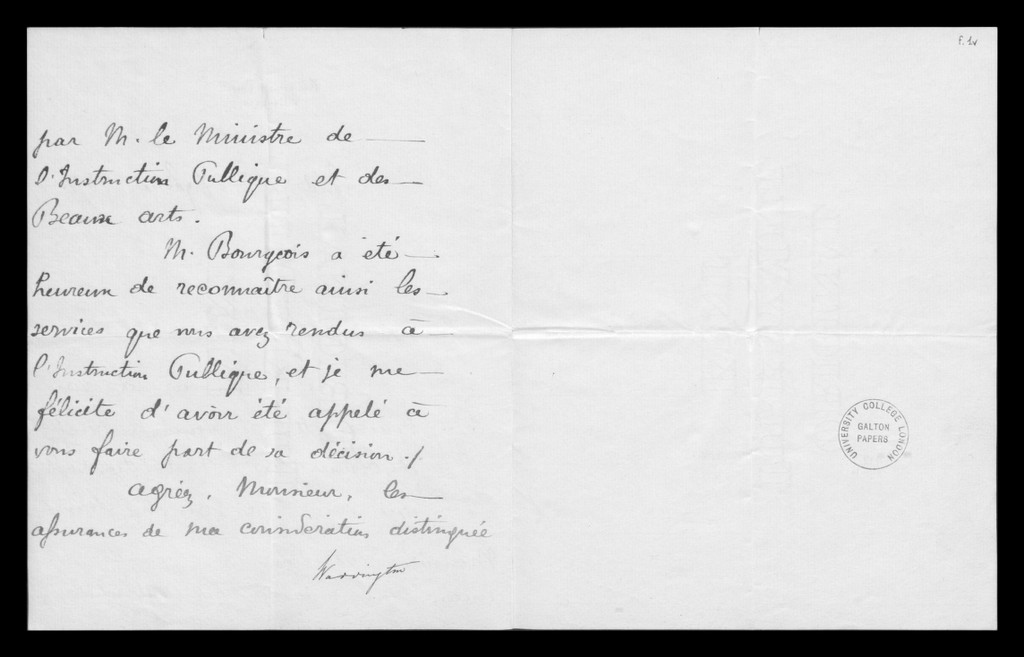 F. 1v
par M. le Ministre de —
l'Instruction Publique et des —
Beaux arts.
M. Bourgeois a été —
heureux de reconnaître ainsi les —
services que vous avez rendus à —
l'Instruction Publique, et je me —
félicite d'avoir été appelé à
vous faire part de sa décision ./.
Agréez, Monsieur, les —
assurances de ma considération distinguée
Waddington
UNIVERSITY COLLEGE LONDON
GALTON
PAPERS